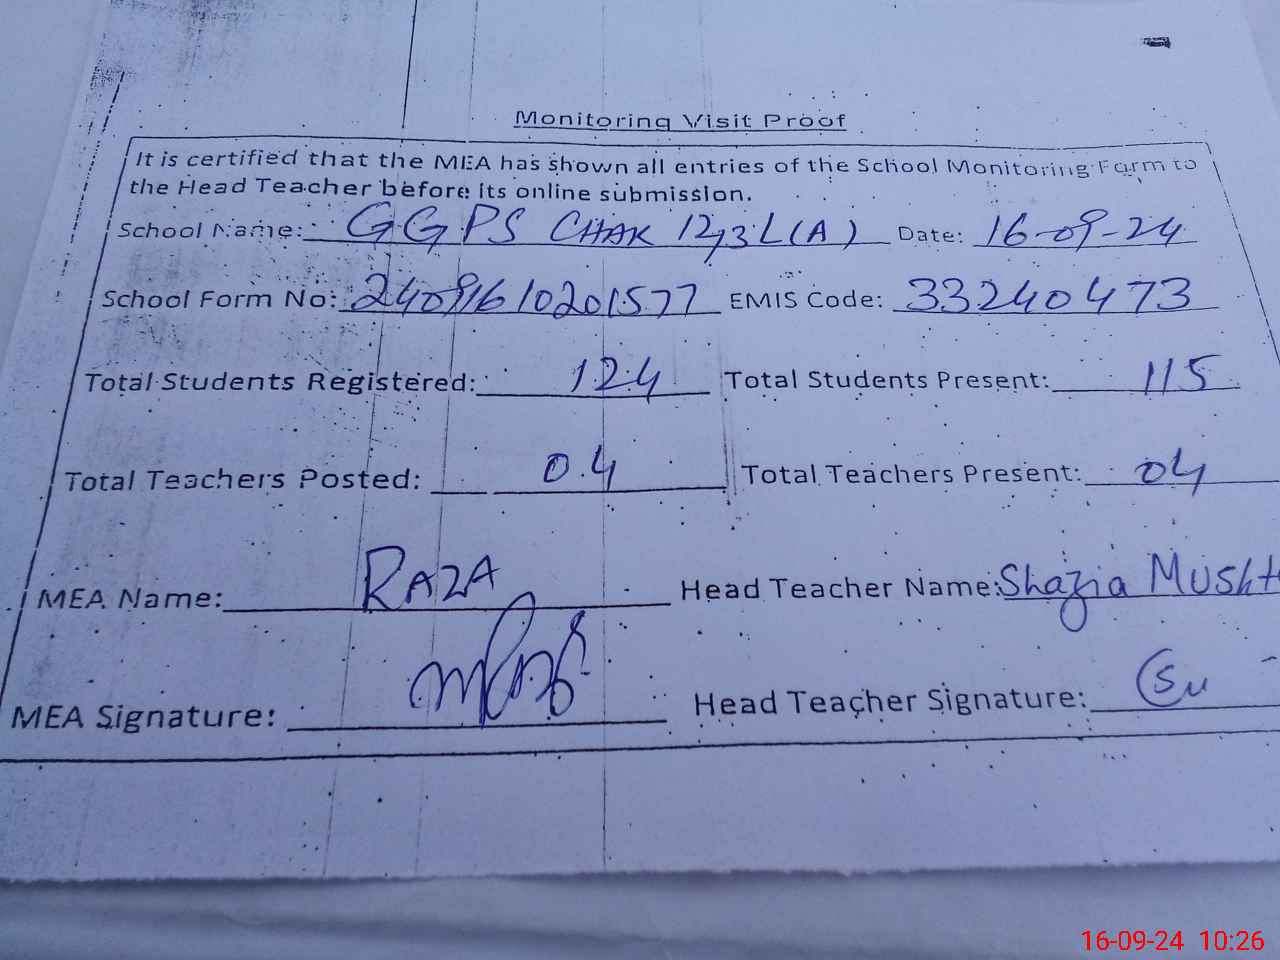 Monitoring Visit Proof
It is certified that the MEA has shown all entries of the School Monitoring Form to
the Head Teacher before its online submission.
School Name: GGPS CHAK 12,3L(A) Date: 16-09-24
School Form No: 24091610201577 EMIS Code: 33240473
Total Students Registered: 124 Total Students Present: 115
Total Teachers Posted: 04 Total Teachers Present: 04
MEA Name: RAZA Head Teacher Name: Shazia Musht
MEA Signature: Head Teacher Signature:
16-09-24 10:26